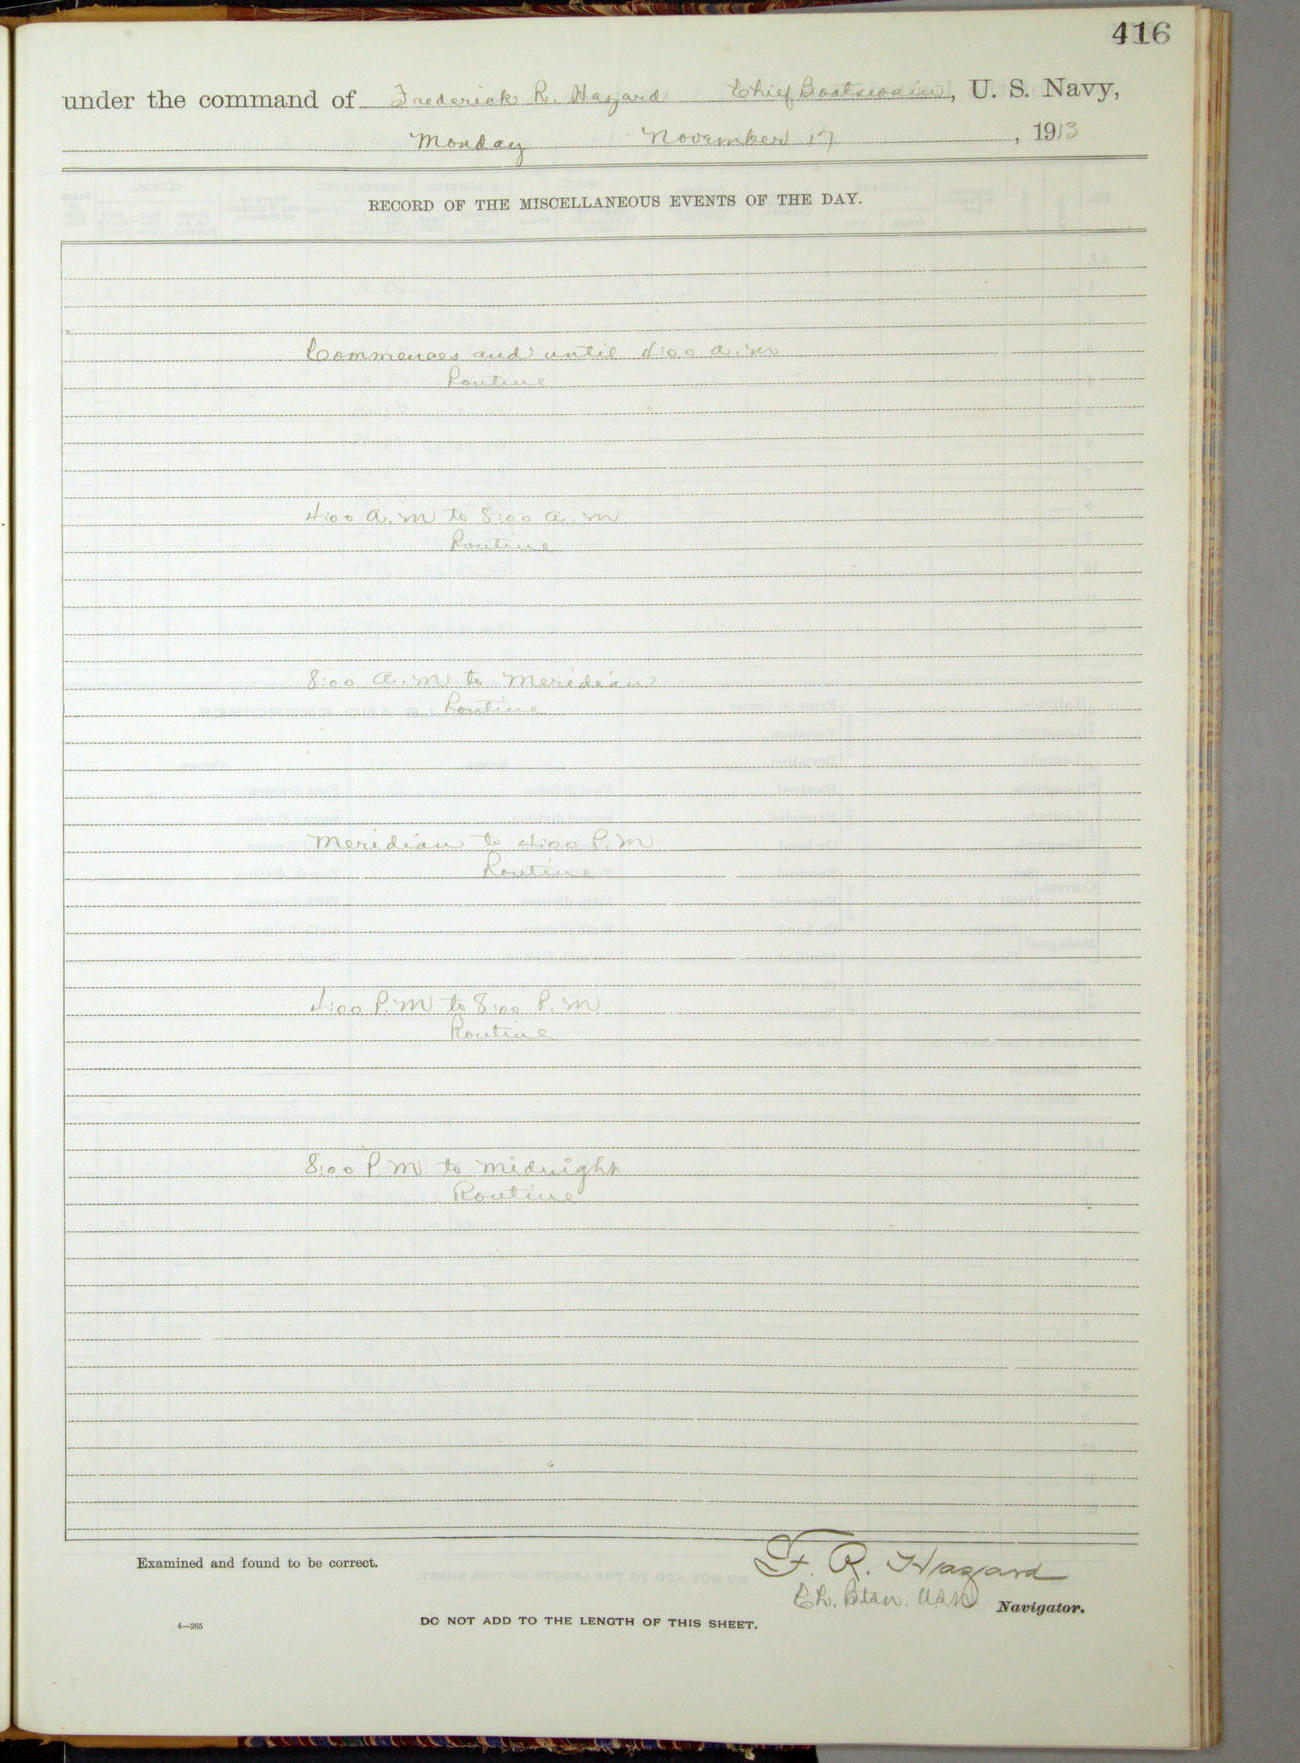 416
under the command of Frederick R. Hazard Chief Boatswain, U. S. Navy,
Monday November 17, 1913
RECORD OF THE MISCELLANEOUS EVENTS OF THE DAY.
Commences and until 4:00 a.m
Routine
4:00 a.m to 8:00 a.m
Routine
8:00 a.m to Meridian
Routine
Meridian to 4:00 P.M
Routine
4:00 P.M to 8:00 P.M
Routine
8:00 P M to Midnight
Routine
Examined and found to be correct.
F. R. Hazard
Ch. Btsn. USN Navigator.
4—265
DO NOT ADD TO THE LENGTH OF THIS SHEET.